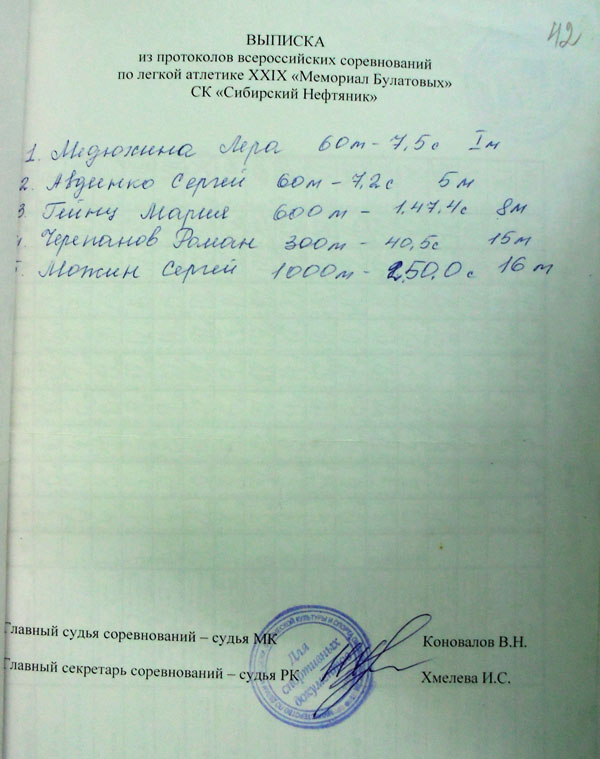 42
ВЫПИСКА
из протоколов всероссийских соревнований
по легкой атлетике XXIX «Мемориал Булатовых»
СК «Сибирский Нефтяник»
1. Медюхина Лера 60м - 7,5с I м
2. Авдеенко Сергей 60м - 7,2с 5 м
3. Гейнц Мария 600м - 1.47.4с 8м
4. Черепанов Роман 300м - 40,5с 15м
5. Можин Сергей 1000м - 2.50.0с 16 м
Главный судья соревнований – судья МК Коновалов В.Н.
Главный секретарь соревнований – судья РК Хмелева И.С.
Для
спортивных
документов